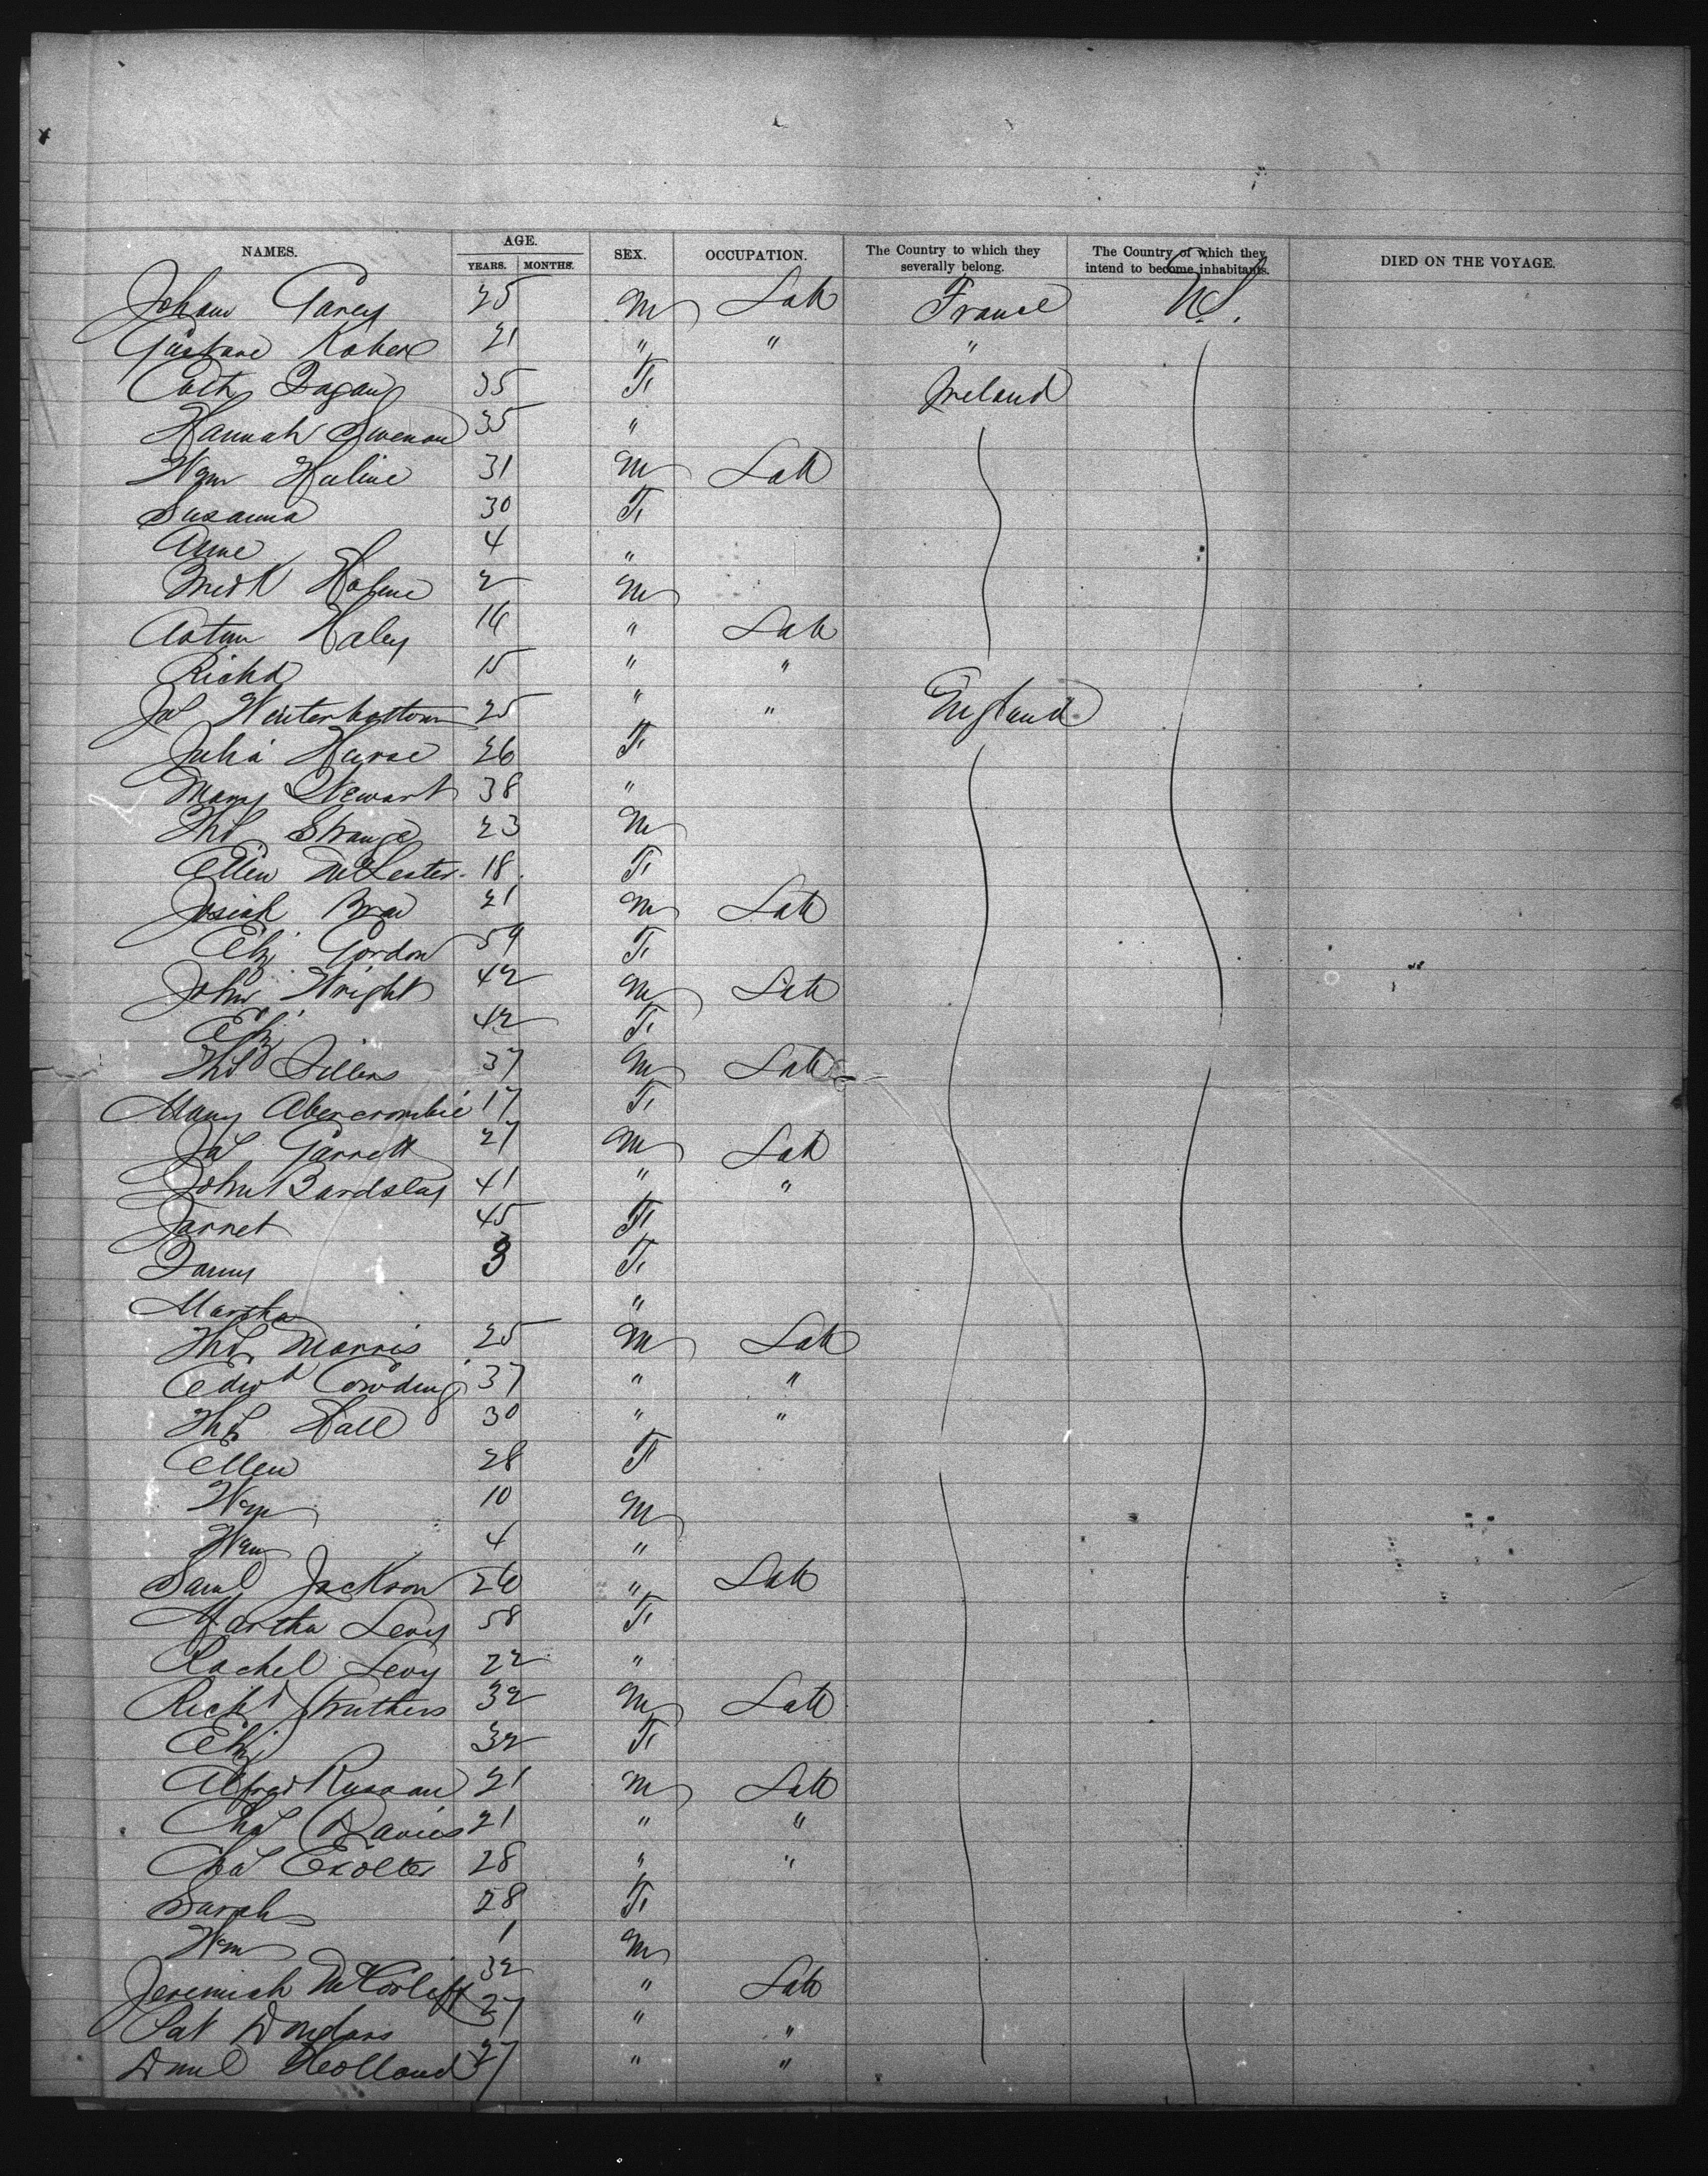 NAMES. AGE. SEX. OCCUPATION. The Country to which they severally belong. The Country of which they intend to become inhabitants. DIED ON THE VOYAGE.
YEARS. MONTHS.
Johann 25 M Lab France U.S.
Gustave 21 " " "
Cath Fagan 35 F Ireland
Hannah 35 "
Wm 31 M Lab
Susanna 30 F
Anne 4 "
2 M
Haley 16 " Lab
Richd 15 " "
Jas Winterbottom 25 " " England
Julia 26 F
Mary Stewart 38 "
Thos Strange 23 M
Ellen McLester 18 F
Josiah 21 M Lab
Eliz Gordon 59 F
John Wright 42 M Lab
Eliz 42 F
Thos 37 M Lab
Mary Abercrombie 17 F
Jas Garrett 27 M Lab
John Bardsley 41 " "
Jannet 45 F
Fanny 3 F
Martha "
Thos Morris 25 M Lab
Edwd Cowding 37 " "
Thos Hall 30 " "
Ellen 28 F
Wm 10 M
Wm 4 "
Saml Jackson 26 " Lab
Martha Levy 58 F
Rachel Levy 22 "
Richd Struthers 32 M Lab
Eliz 32 F
Alfred 21 M Lab
Chas Davies 21 " "
Chas 28 " "
Sarah 28 F
Wm 1 M
Jeremiah 32 " Lab
Pat 27 " "
Danl Holland 27 " "